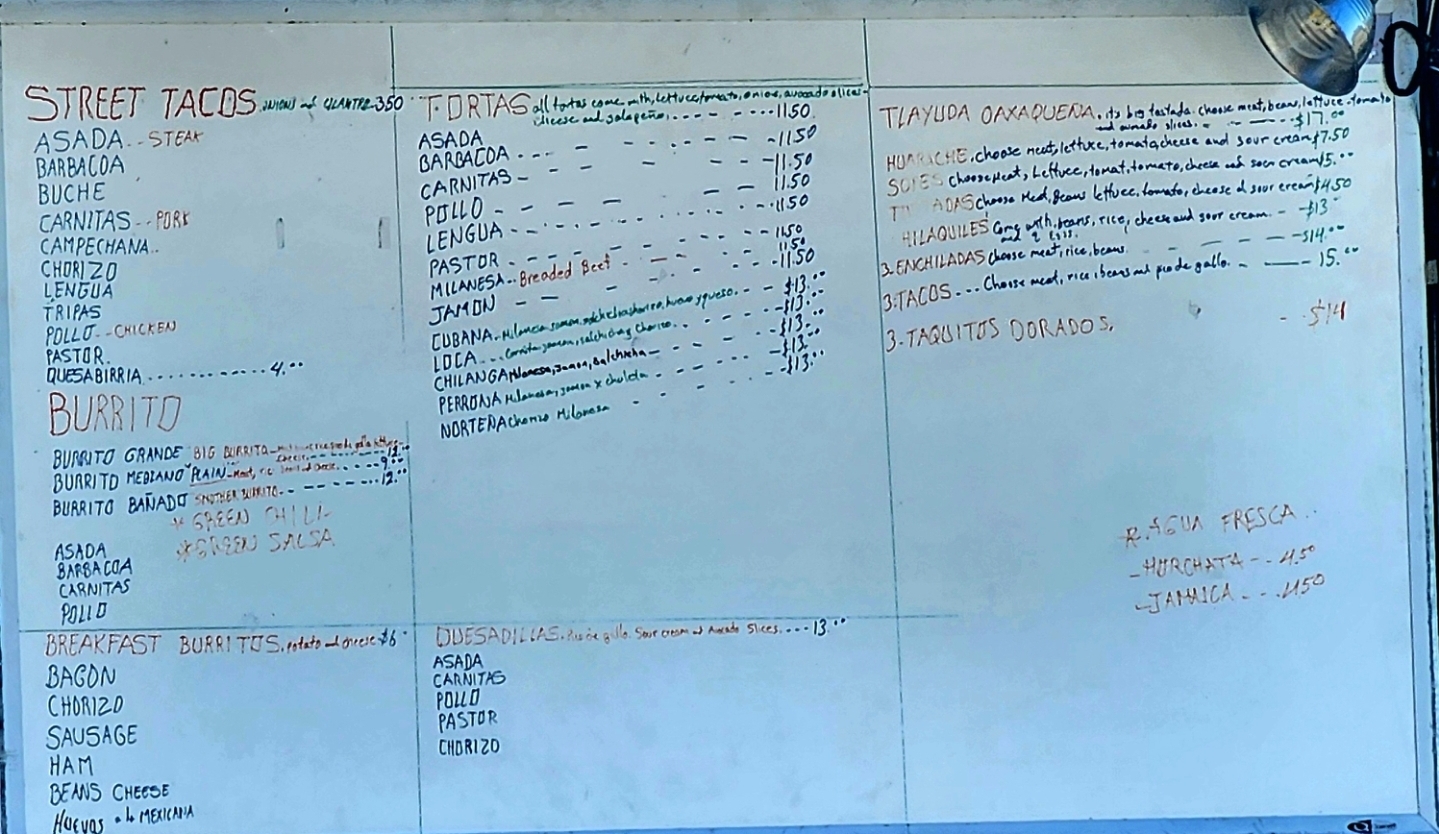 STREET TACOS. ONIONS and CILANTRO-350
ASADA..STEAK
BARBACOA
BUCHE
CARNITAS..PORK
CAMPECHANA..
CHORIZO
LENGUA
TRIPAS
POLLO..CHICKEN
PASTOR.
QUESABIRRIA............4.00
BURRITO
BURRITO GRANDE "BIG BURRITO
cheese.-------12.00
BURRITO MEDIANO "PLAIN"-Meat, and cheese.....9.00
BURRITO BAÑADO SMOTHER BURRITO.-------12.00
* GREEN CHILI
* GREEN SALSA
ASADA
BARBACOA
CARNITAS
POLLO
BREAKFAST BURRITOS. potato and cheese $6
BACON
CHORIZO
SAUSAGE
HAM
BEANS CHEESE
HUEVOS a la MEXICANA
TORTAS all tortas come with, lettuce, tomato, onion, avocado slices
cheese and jalapeño.---- 11.50
ASADA - - - - - 11.50
BARBACOA - - - - - 11.50
CARNITAS - - - - 11.50
POLLO - - - - - 11.50
LENGUA - - - - - 11.50
PASTOR - - - - - 11.50
MILANESA.. Breaded Beef - - - 11.50
JAMON - - - - 11.50
CUBANA.. huevo y queso.. - - $13.00
LOCA ... jamon, salchicha y Chorizo. - - - $13.00
CHILANGA Milanesa, Jamon, Salchicha - - - $13.00
PERRONA Milanesa, jamon x chuleta - - - $13.00
NORTEÑA Chorizo Milanesa - - - $13.00
QUESADILLAS. Pico de gallo. Sour cream and Avocado Slices....13.00
ASADA
CARNITAS
POLLO
PASTOR
CHORIZO
TLAYUDA OAXAQUEÑA. its big tostada. choose meat, beans, lettuce-tomato
and avocado slices. - - - - $17.00
HUARACHE. choose meat, lettuce, tomato, cheese and sour cream $7.50
SOPES choose Meat, Lettuce, tomat, tomato, cheese and sour cream $5.00
T ADAS choose Meat, Beans lettuce, tomato, cheese d sour cream $4.50
HILAQUILES Come with, beans, rice, cheese and sour cream. - $13
and 2 eggs.
3.ENCHILADAS choose meat, rice, beans. - - - - $14.00
3.TACOS... Choose meat, rice, beans and pico de gallo. - - 15.00
3.TAQUITOS DORADOS. - - $14
R. AGUA FRESCA..
-HORCHATA - - 4.50
-JAMAICA - - - 4.50